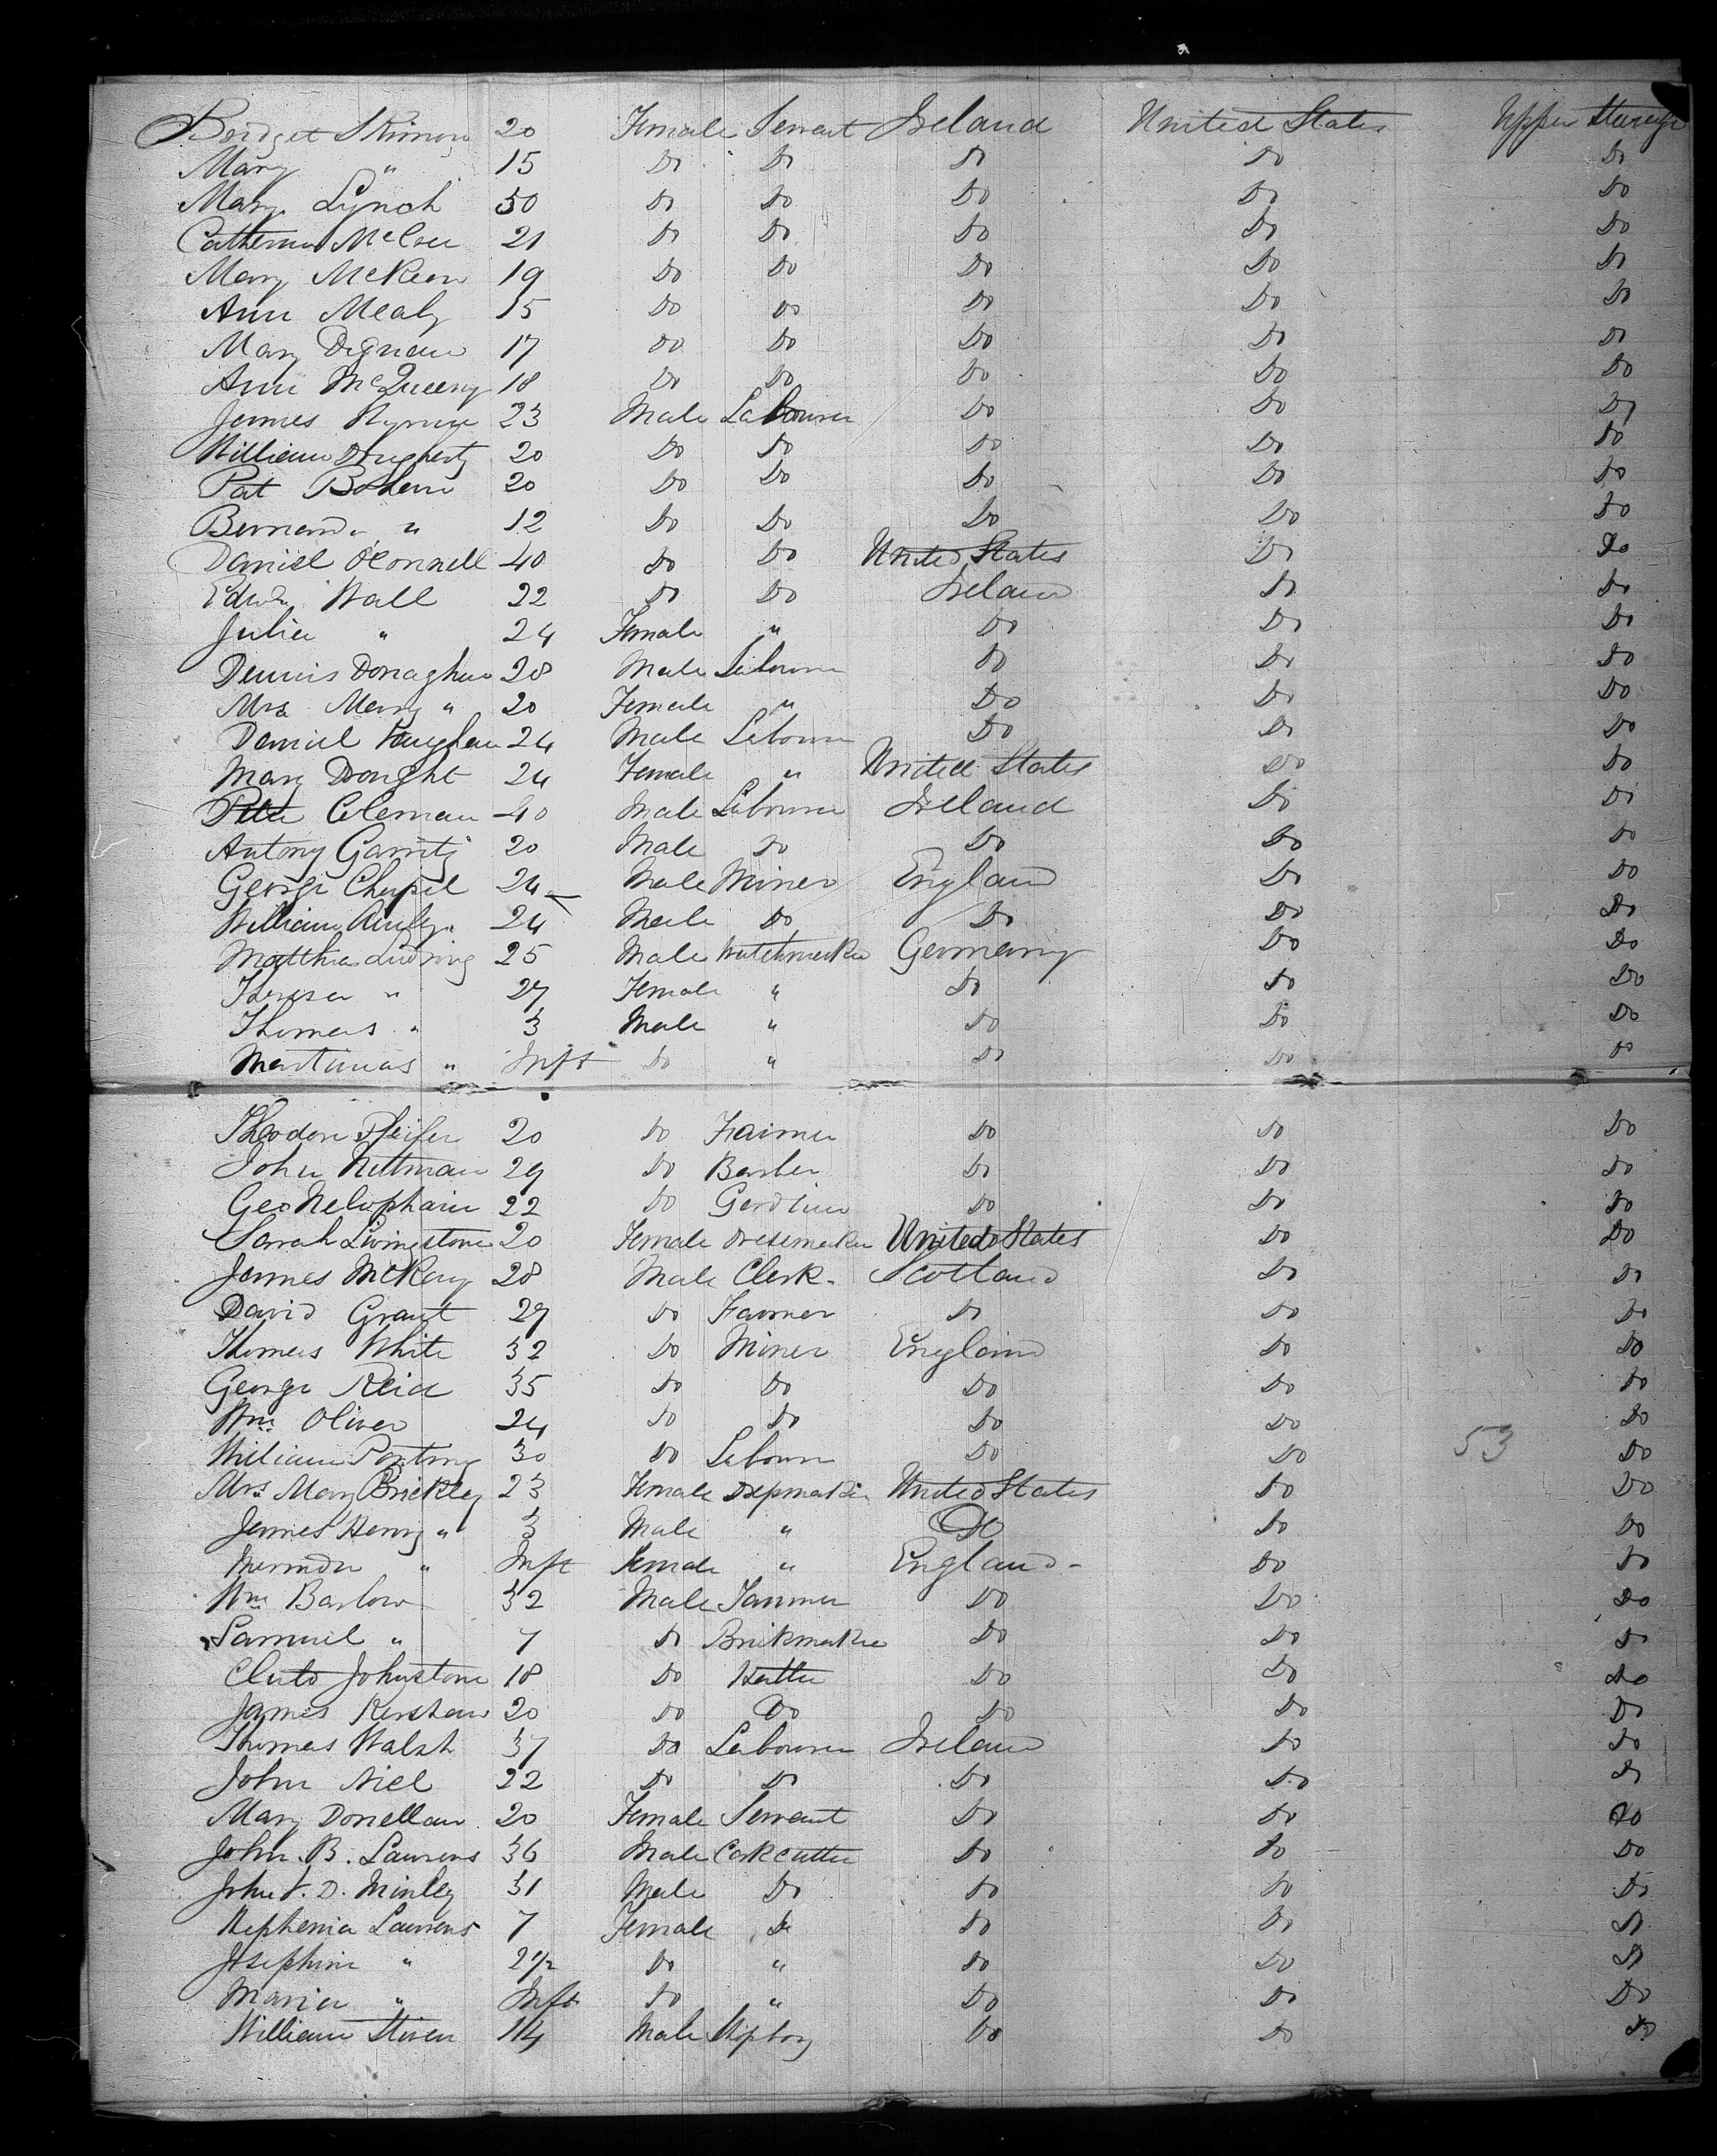 Bridget Skinnon 20 Female Servant Ireland United States Upper Steerage
Mary " 15 Do Do Do Do Do
Mary Lynch 30 Do Do Do Do Do
Catherine McCree 21 Do Do Do Do Do
Mary McKeon 19 Do Do Do Do Do
Ann Mealy 15 Do Do Do Do Do
Mary Dignan 17 Do Do Do Do Do
Ann McQueeny 18 Do Do Do Do Do
James 23 Male Labourer Do Do Do
William Dougherty 20 Do Do Do Do Do
Pat Bohern 20 Do Do Do Do Do
Bernard " 12 Do Do Do Do Do
Daniel OConnell 40 Do Do United States Do Do
Edwd Wall 22 Do Do Ireland Do Do
Julia " 24 Female " Do Do Do
Dennis Donaghue 28 Male Labourer Do Do Do
Mrs Mary " 20 Female " Do Do Do
Daniel Vaughan 24 Male Labourer Do Do Do
Mary Donght 24 Female " United States Do Do
Peter Coleman 40 Male Labourer Ireland Do Do
Antony Garrity 20 Male Do Do Do Do
George Chapel 24 Male Miner England Do Do
William 24 Male Do Do Do Do
Matthias Ludwig 25 Male Watchmaker Germany Do Do
Theresa " 27 Female " Do Do Do
Thomas " 3 Male " Do Do Do
Martinas " Inft Do " Do Do Do
Theodore Pfeifer 20 Do Farmer Do Do Do
John Nittman 29 Do Barber Do Do Do
Geo 22 Do Do Do Do
Sarah Livingstone 20 Female Dressmaker United States Do Do
James McKay 28 Male Clerk Scotland Do Do
David Grant 27 Do Farmer Do Do Do
Thomas White 32 Do Miner England Do Do
George Reid 35 Do Do Do Do Do
Wm Oliver 24 Do Do Do Do Do
William Ponting 30 Do Labourer Do Do 53 Do
Mrs Mary Brickley 23 Female Dressmaker United States Do Do
James Henry " 3 Male " Do Do Do
" Inft Female " England Do Do
Wm Barlow 32 Male Do Do Do
Samuel " 7 Do Brickmaker Do Do Do
Johnstone 18 Do Hatter Do Do Do
James Kershaw 20 Do Do Do Do Do
Thomas Walsh 37 Do Labourer Ireland Do Do
John Niel 22 Do Do Do Do Do
Mary Donellan 20 Female Servant Do Do Do
John B. Laurens 36 Male Corkcutter Do Do Do
John F. D. Minley 31 Male Do Do Do Do
Laurens 7 Female Do Do Do Do
Josephine " 2 1/2 Do " Do Do Do
Maria " Inft Do " Do Do Do
William Stiven 14 Male Shipboy Do Do Do